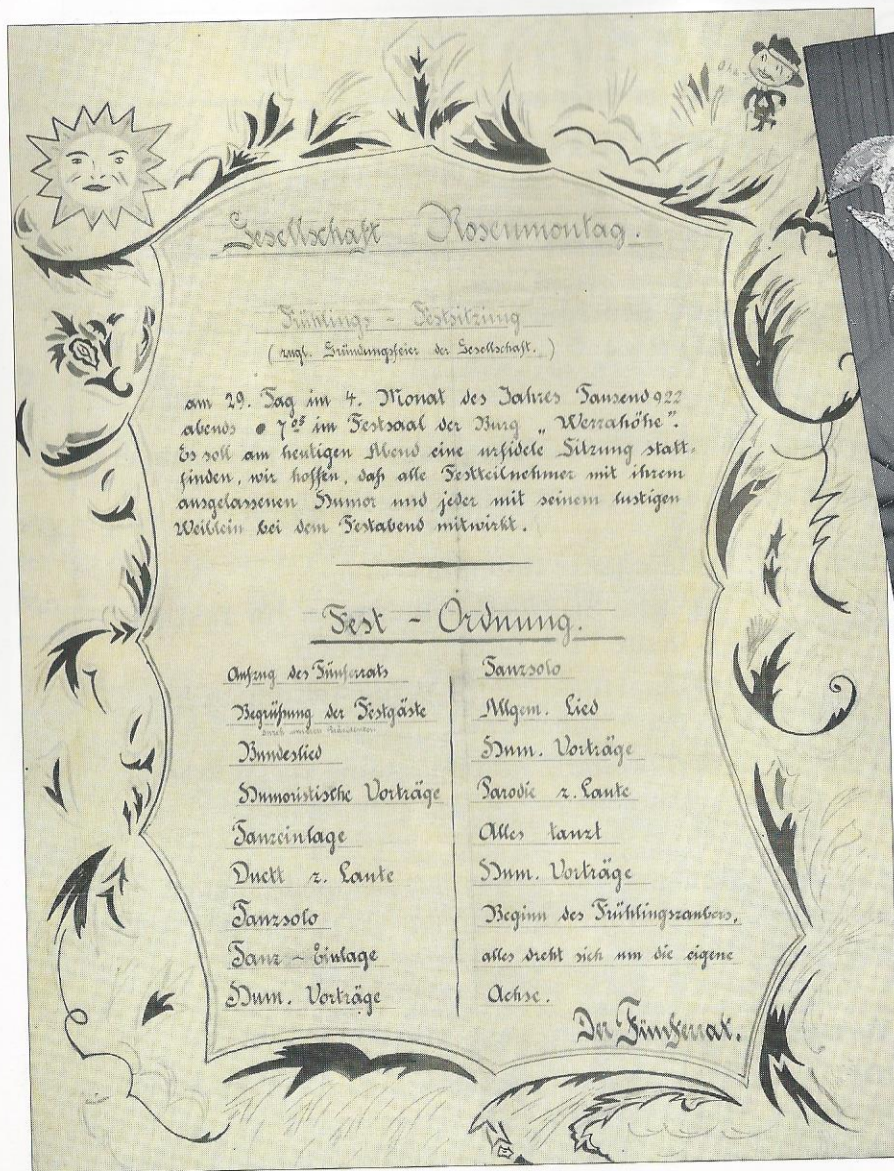 Gesellschaft Rosenmontag.
Frühlings - Festsitzung
(zugl. Gründungsfeier der Gesellschaft.)
am 29. Tag im 4. Monat des Jahres Tausend 922
abends 7⁰⁵ im Festsaal der Burg „Werrahöhe".
Es soll am heutigen Abend eine urfidele Sitzung statt-
finden, wir hoffen, daß alle Festteilnehmer mit ihrem
ausgelassenen Humor und jeder mit seinem lustigen
Weiblein bei dem Festabend mitwirkt.
Fest - Ordnung.
Aufzug des Fünferrats
Begrüßung der Festgäste
durch unseren Präsidenten
Bundeslied
Humoristische Vorträge
Tanzeinlage
Duett z. Laute
Tanzsolo
Tanz - Einlage
Hum. Vorträge
Tanzsolo
Allgem. Lied
Hum. Vorträge
Parodie z. Laute
Alles tanzt
Hum. Vorträge
Beginn des Frühlingszaubers,
alles dreht sich um die eigene
Achse.
Der Fünferrat.